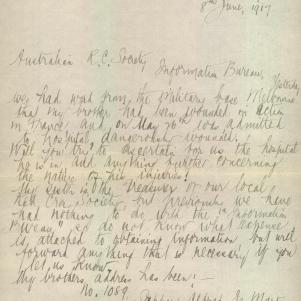 8th June, 1917
Australian R.C. Society,
Information Bureau,
Yesterday
we had word from the Military base Melbourne
that my brother had been wounded in action
in France, and on May 26th was admitted
to hospital dangerously wounded.
Will you try to ascertain for us the hospital
he is in and anything further concerning
the nature of his injuries?
My sister is the Treasurer of our local
Red Cross Society, but previously we have
had nothing to do with the "Information
Bureau" so do not know what expense
is attached to obtaining information but will
forward anything that is necessary if you
let us know.
My brothers address has been:-
No. 1089